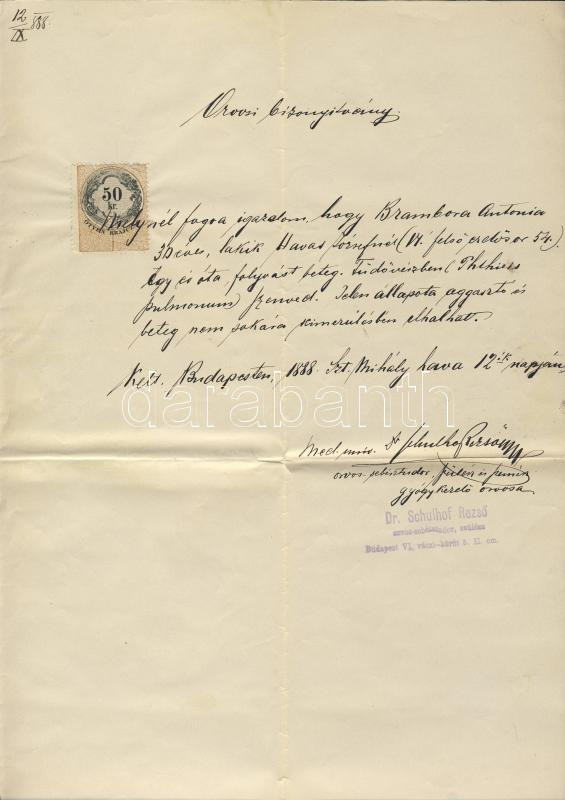 12/IX 888
Orvosi bizonyitvány.
50
kr.
ÖTVEN KRAJCZ
Melynél fogva igazolom, hogy Brambora Antonia
30 éves, lakik Havas Józsefnél (VI. felső erdősor 54.)
Egy év óta folyvást beteg. Tüdővészben (Phthisis
pulmonum) szenved. Jelen állapota aggasztó és
beteg nem sokára kimerülésben elhalhat.
Kelt. Budapesten, 1888. Szt. Mihály hava 12ik napján
darabanth
Med. univ. Dr Schulhof Rezső
orvos sebésztudor
gyógykezelő orvosa
Dr. Schulhof Rezső
orvos-sebésztudor, szülész
Budapest VI, váczi-körút 5. II. em.